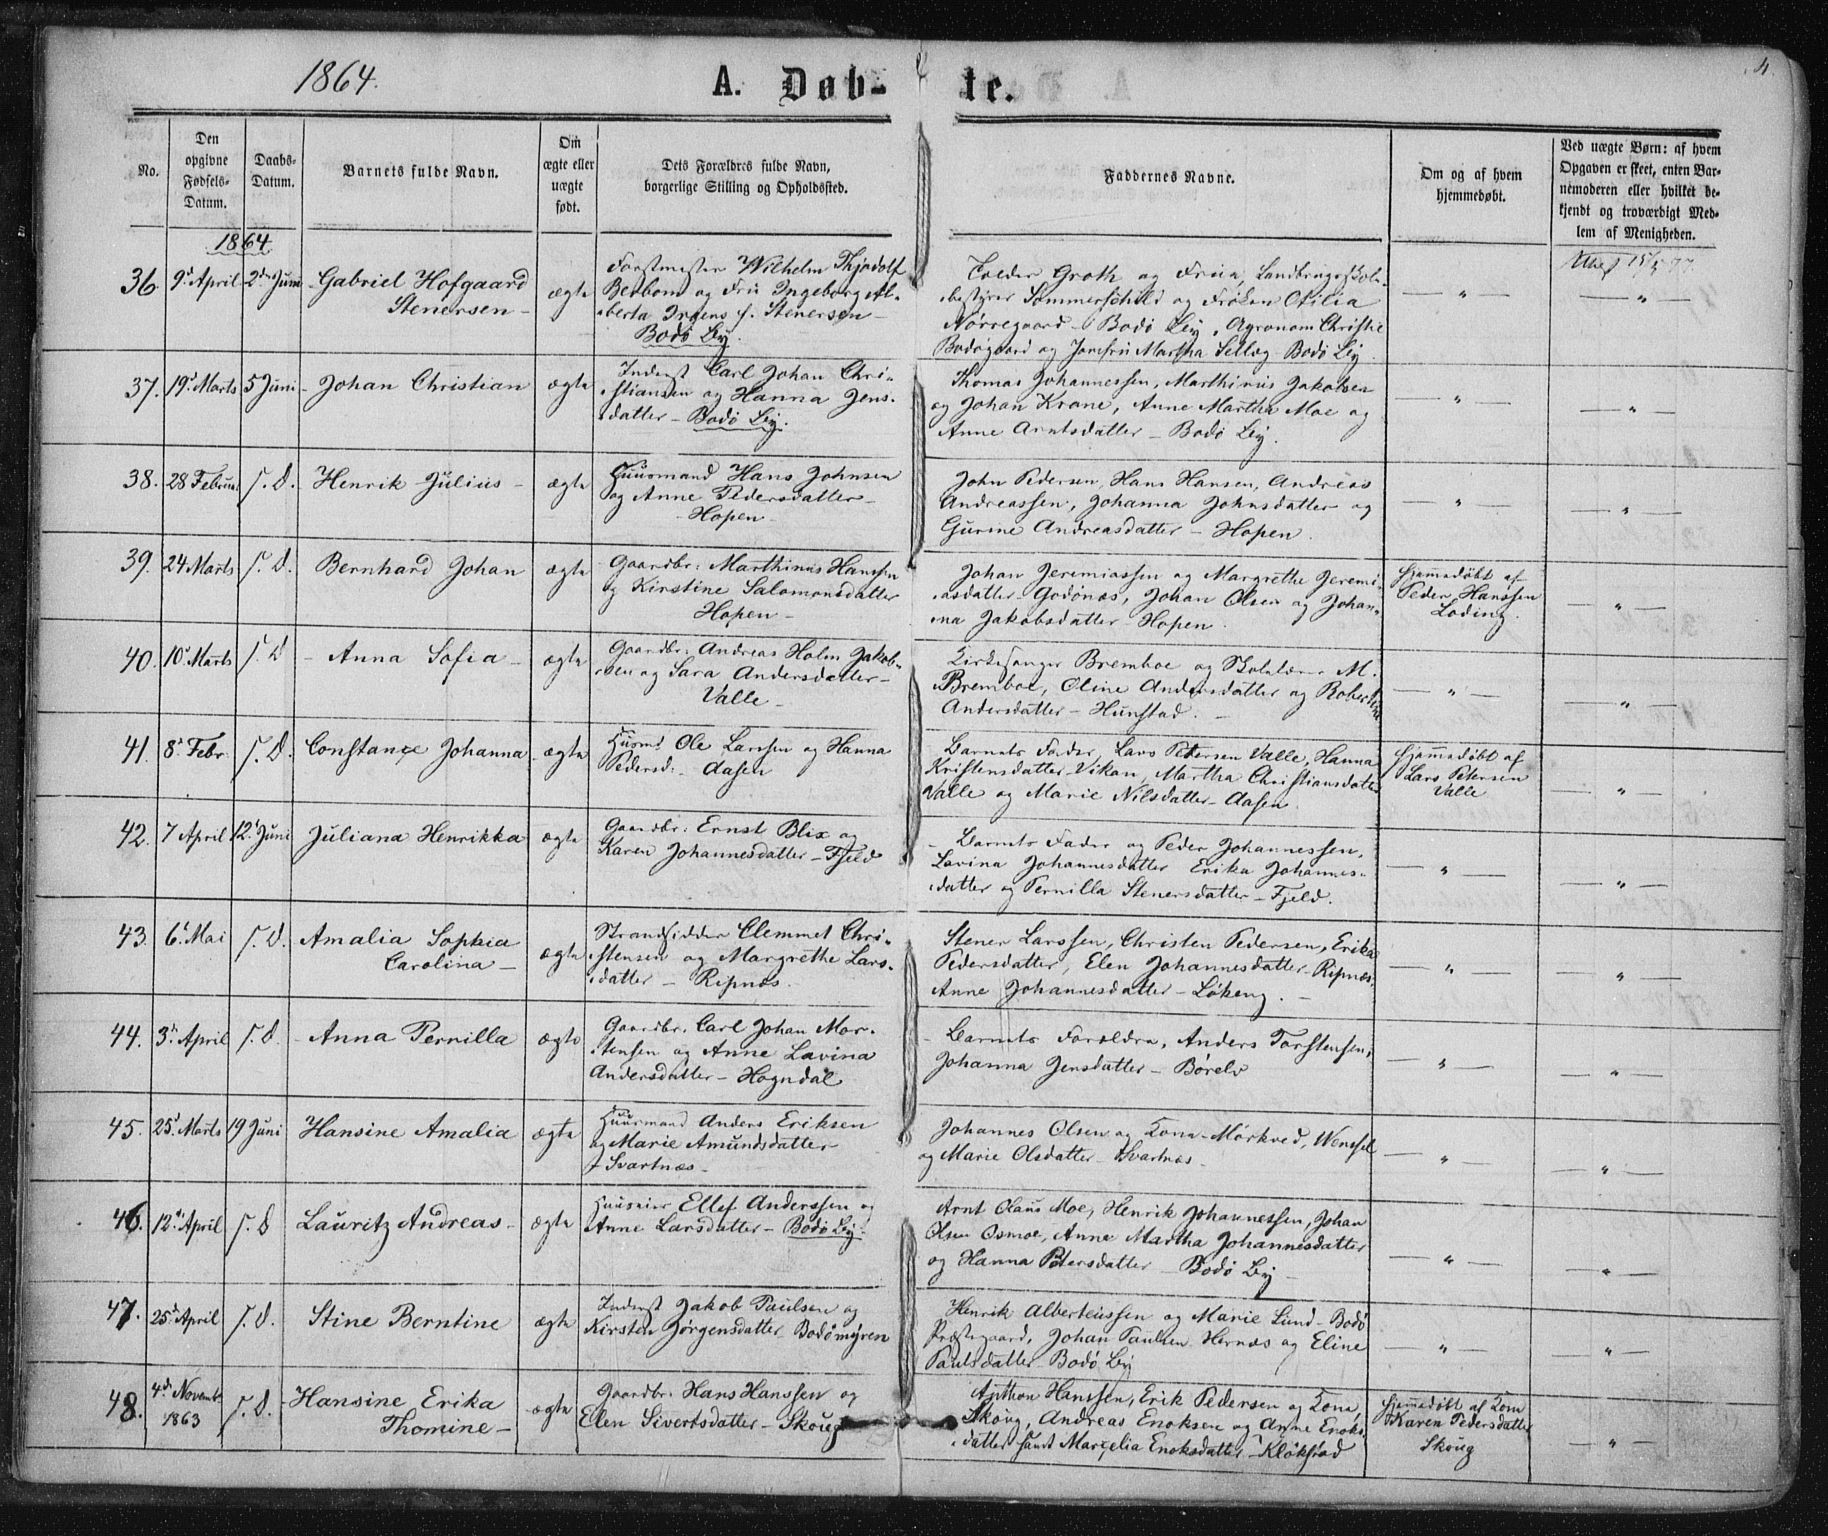 1864.
A. Døb-
te.
4.
No.
Den
opgivne
Fødsels-
Datum.
Daabs-
Datum.
Barnets fulde Navn.
Om
ægte eller
uægte
født.
Dets Forældres fulde Navn,
borgerlige Stilling og Opholdssted.
Faddernes Navne.
Om og af hvem
hjemmedøbt.
Ved uægte Børn: af hvem
Opgaven er skeet, enten Bar-
nemoderen eller hvilket be-
kjendt og troværdigt Med-
lem af Menigheden.
1864
36 9d April 2den Juni Gabriel Hofgaard
Stenersen –
ægte
Forstmester Wilhelm Thjodolf
Bedbom og Fru Ingeborg Al-
berta Irgens f. Stenersen –
Bodø By.
Tolder Groth og Frue, Landbrugsskole-
bestyrer Sommerschild og Frøken Otilia
Nörregaard – Bodö By, Agronom Christie
Bodøgaard og Jomfru Martha Sellæg Bodö By.
— " —
— " —
37. 19d Marts 5 Juni – Johan Christian
ægte
Inderst Carl Johan Chri-
stiansen og Hanna Jens-
datter – Bodö By.
Thomas Johannessen, Marthinus Jakobsen
og Johan Krane, Anne Martha Moe og
Anne Arntsdatter – Bodö By.
— " —
— " —
38. 28 Februar s. D. Henrik Julius –
ægte
Huusmand Hans Johnsen
og Anne Pedersdatter –
– Hopen –
John Pedersen, Hans Hansen, Andreas
Andreassen, Johanna Johnsdatter og
Gurine Andreasdatter – Hopen.
— " —
— " —
39. 24 Marts s. D. Bernhard Johan
ægte
Gaardbr: Marthinus Hanssen
og Kirstine Salomonsdatter
Hopen –
Johan Jeremiassen og Margrethe Jeremi-
asdatter – Godönes, Johan Olsen og Johan-
na Jakobsdatter – Hopen.
Hjemmedöbt af
Peder Hanssen
Loding.
— " —
40. 10d Marts s. D – Anna Sofia –
ægte
Gaardbr: Andreas Holm Jakob-
sen og Sara Andersdatter –
Valle –
Kirkesanger Bremboe og Skolelærer M.
Bremboe, Oline Andersdatter og Robertine
Andersdatter – Hunstad. –
— " —
— " —
41. 8d Febr. s. D. Constance Johanna
ægte
Husmd Ole Larssen og Hanna
Pedersd: – Aasen
Barnets Fader, Lars Petersen Valle, Hanna
Kristensdatter Vikan, Martha Christiansdatter
Valle og Marie Nilsdatter – Aasen.
Hjemmedöbt af
Lars Petersen
Valle
— " —
42. 7 April 12d Juni Juliana Henrikka
ægte
Gaardbr: Ernst Blix og
Karen Johannesdatter – Fjeld
– Barnets Fader og Peder Johannessen,
Lavina Johannesdatter Erika Johannes-
datter og Pernilla Stenersdatter – Fjeld.
— " —
— " —
43. 6d Mai s. D. Amalia Sophia
Carolina –
ægte
Strandsidder Clemmet Chri-
stensen og Margrethe Lars-
datter – Ripnæs.
Stener Larssen, Christen Pedersen, Erika
Pedersdatter, Elen Johannesdatter – Ripnæs,
Anne Johannesdatter – Lökeng. –
— " —
— " —
44. 3d April s. D. – Anna Pernilla
ægte
Gaardbr. Carl Johan Mor-
tensen og Anne Lavina
Andersdatter – Hogndal
– Barnets Forældre, Anders Torstensen,
Johanna Jensdatter – Börelv
— " —
— " —
45. 25d Marts 19 Juni Hansine Amalia
ægte
Huusmand Anders Eriksen
og Marie Amundsdatter
Svartnæs –
Johannes Olsen og Kone – Mörkved, Wensel
og Marie Olsdatter – Svartnæs –
— " —
— " —
46. 12d April s. D Lauritz Andreas –
ægte
Huuseier Ellef Anderssen og
Anne Larsdatter – Bodö By.
Arnt Olaus Moe, Henrik Johannessen, Johan
Olsen Osmoe, Anne Martha Johannesdatter
og Hanna Petersdatter – Bodö By –
— " —
— " —
47. 25d April s. D. Stine Berntine
ægte
Inderst Jakob Paulsen og
Kirsten Jörgensdatter Bodömyren
Henrik Alberteussen og Marie Lund – Bodö
Præstegaard, Johan Paulsen Hernæs og Eline
Paulsdatter – Bodö By
— " —
— " —
48. 4de Novembr
1863 s. D. Hansine Erika
Thomine –
ægte
Gaardbr: Hans Hanssen og
Elen Sivertsdatter – Skoug
Anthon Hanssen, Erik Pedersen og Kone
Skoug, Andreas Enoksen og Anne Enoks-
datter samt Marcelia Enoksdatter – Klöksad
Hjemmedöbt af Kone
Karen Pedersdatter
Skoug
— " —